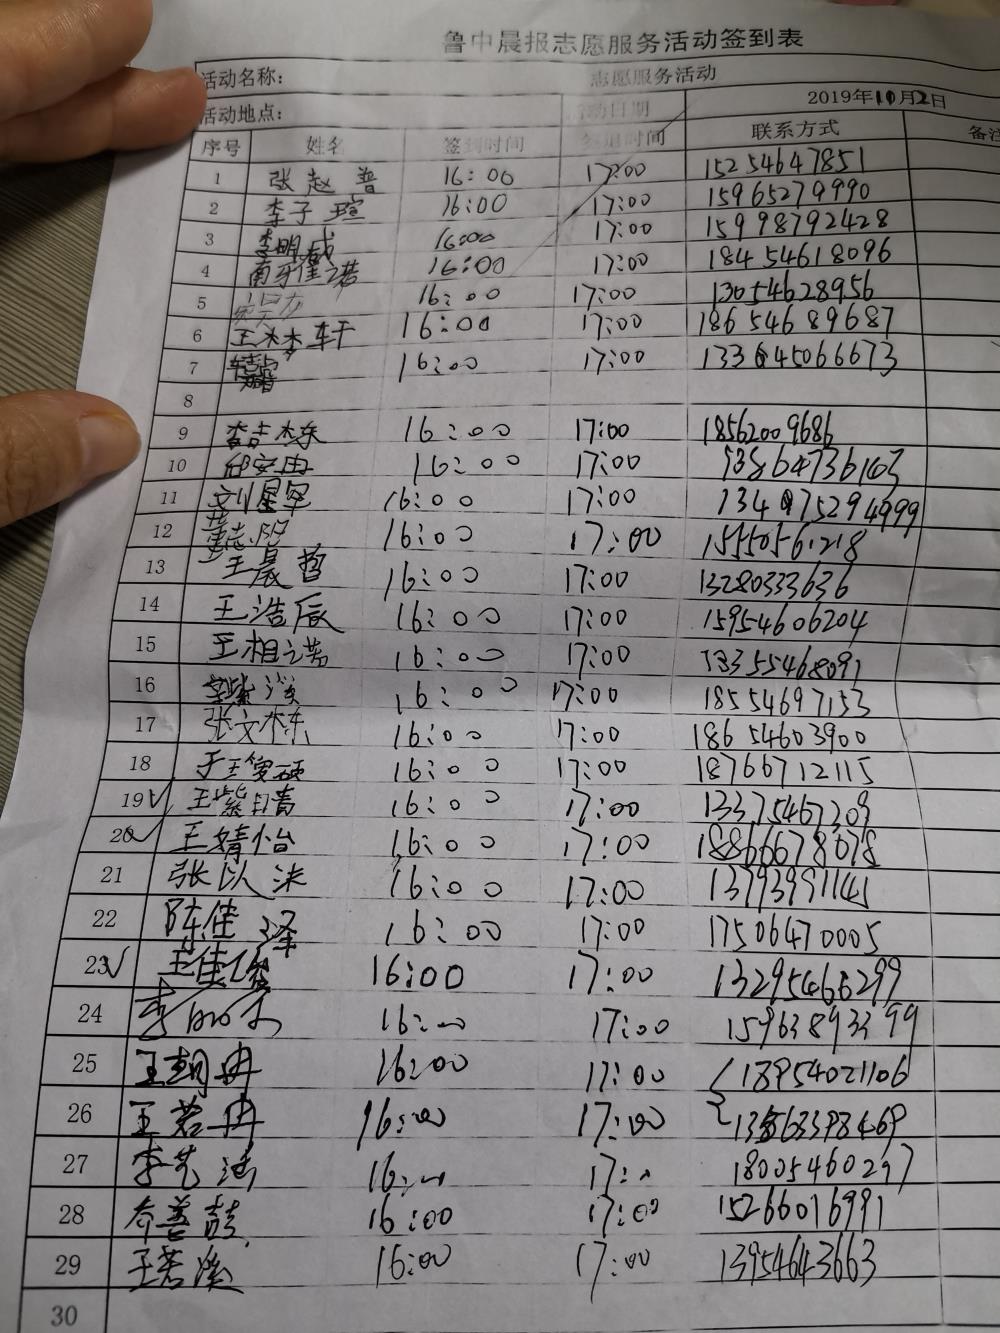 鲁中晨报志愿服务活动签到表
活动名称： 志愿服务活动
活动地点： 活动日期 2019年10月2日
序号 姓名 签到时间 签退时间 联系方式 备注
1 张赵普 16:00 17:00 15254647851
2 李子瑄 16:00 17:00 15965279990
3 李明威 16:00 17:00 15998792428
4 16:00 17:00 18454618096
5 16:00 17:00 13054628956
6 16:00 17:00 18654689687
7 16:00 17:00
8
9 李吉栋 16:00 17:00 18562009686
10 邱安冉 16:00 17:00
11 刘星罕 16:00 17:00
12 16:00 17:00
13 王晨哲 16:00 17:00 13280333636
14 王浩辰 16:00 17:00 15954606204
15 王相之诺 16:00 17:00
16 16:00 17:00 18554697153
17 张文栋 16:00 17:00 18654603900
18 16:00 17:00 18766712115
19√ 王紫晴 16:00 17:00 13375467209
20√ 王婧怡 16:00 17:00 18866678678
21 张以沫 16:00 17:00 13793991141
22 陈佳泽 16:00 17:00 17506470005
23√ 王佳俊 16:00 17:00 13295466299
24 16:00 17:00 15963893399
25 王朝冉 16:00 17:00 18954021106
26 王若冉 16:00 17:00
27 李艺涵 16:00 17: 18005460297
28 16:00 17:00 15266016991
29 王若溪 16:00 17:00 13954643663
30